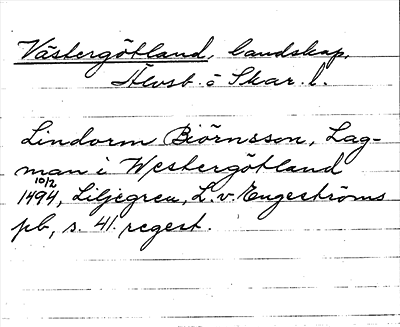 Västergötland, landskap.
Älvsb. o Skar. l.
Lindorm Björnsson, Lag-
man i Westergötland
10/2 1494, Liljegren, L. v. Engeströms
pb, s. 41. regest.